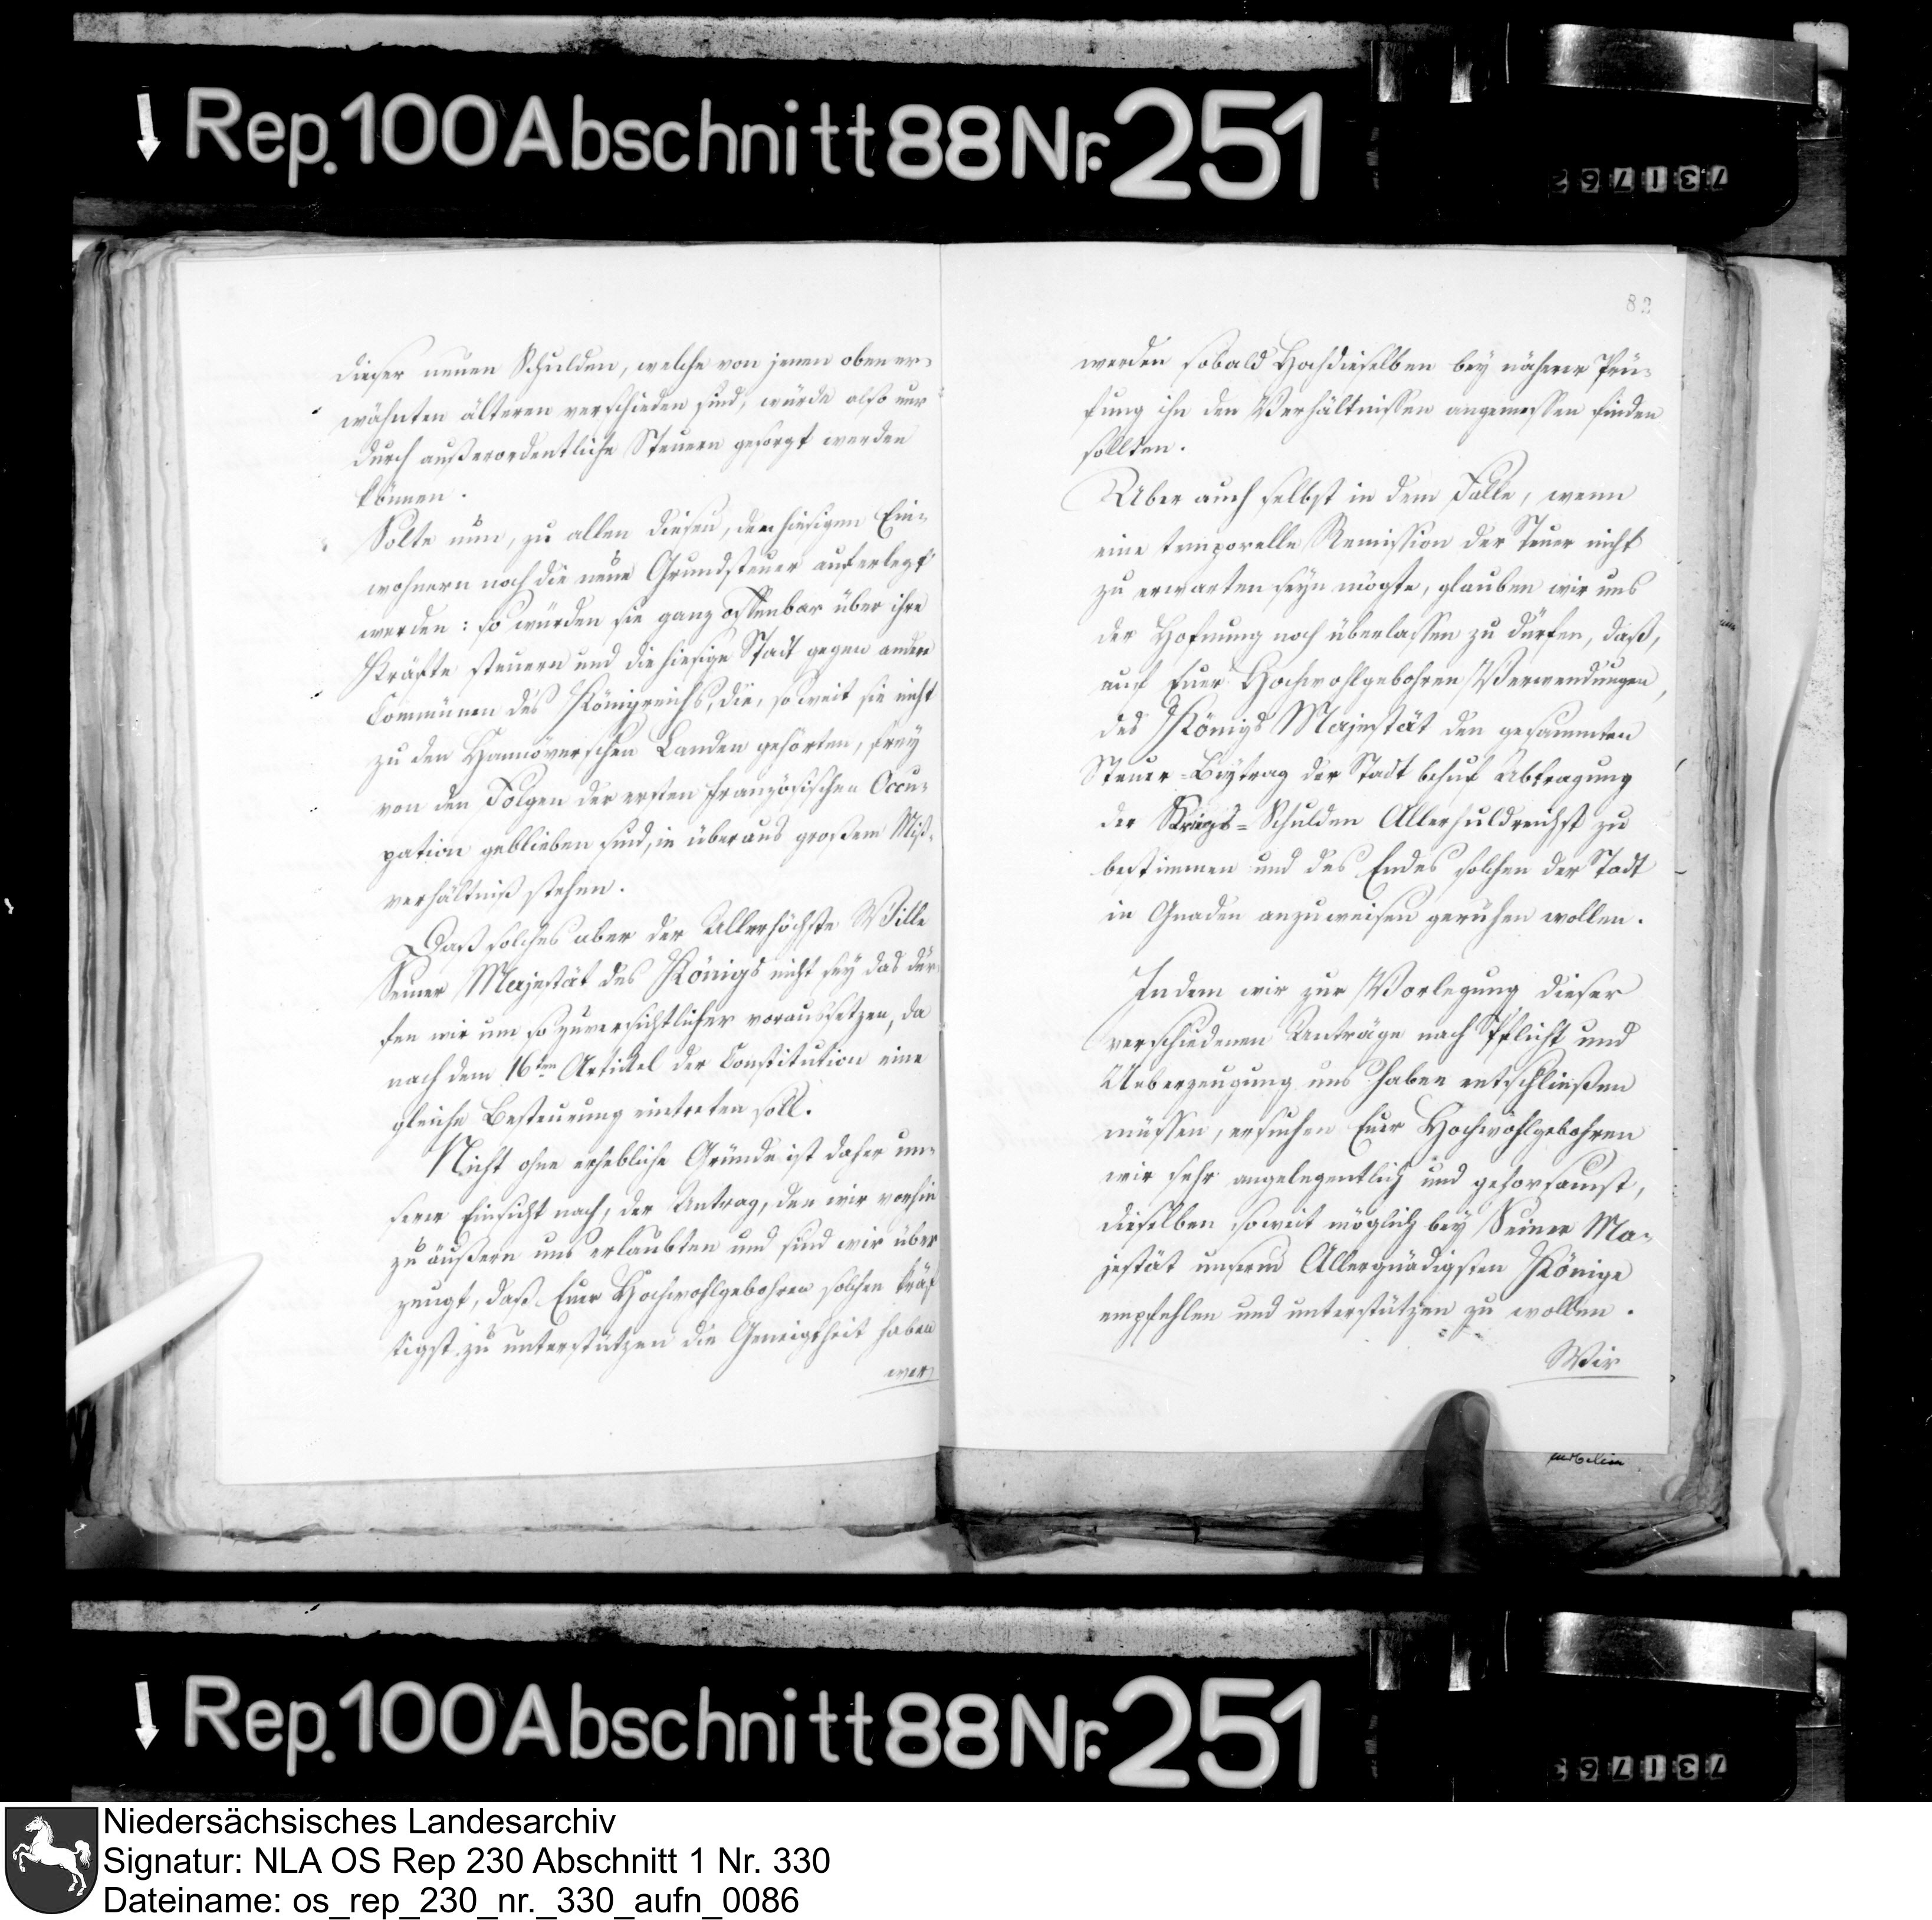 Rep. 100 Abschnitt 88 Nr. 251
731762
dieser neuen Schulden, welche von jenen oben er-
wähnten älteren verschieden sind, würde also nur
durch außerordentliche Steuern gesorgt werden
können.
Solte nun, zu allen diesen, den hiesigen Ein-
wohnern noch die neue Grundsteuer auferlegt
werden: so würden sie ganz offenbar über ihre
Kräfte steuern und die hiesige Stadt gegen andere
Communen des Königreichs, die, so weit sie nicht
zu den Hannöverschen Landen gehörten, frey
von den Folgen der ersten französischen Occu-
pation geblieben sind, in überaus großem Miß-
verhältniß stehen.
Daß solches aber der Allerhöchste Wille
Seiner Majestät des Königs nicht sey das dür-
fen wir um so zuversichtlicher voraussetzen, da
nach dem 16ten Artickel der Constitution eine
gleiche Besteurung eintreten soll.
Nicht ohne erhebliche Gründe ist daher un-
serer Einsicht nach, der Antrag, den wir vorhin
zu äußern uns erlaubten und sind wir über
zeugt, daß Euer Hochwohlgebohren solchen kräf
tigst zu unterstützen die Geneigtheit haben
wer-
82
werden sobald Hochdieselben bey näherer Prü-
fung ihn den Verhältnissen angemessen finden
sollten.
Aber auch selbst in dem Falle, wenn
eine temporelle Remission der Steuer nicht
zu erwarten seyn mögte, glauben wir uns
der Hofnung noch überlassen zu dürfen, daß,
auf Euer Hochwohlgebohren Verwendungen,
des Königs Majestät den gesammten
Steuer-Beytrag der Stadt behuf Abtragung
der Kriegs-Schulden Allerhuldreichst zu
bestimmen und des Endes solchen der Stadt
in Gnaden anzuweisen geruhen wollen.
Indem wir zur Vorlegung dieser
verschiedenen Anträge nach Pflicht und
Ueberzeugung uns haben entschließen
müssen, ersuchen Euer Hochwohlgebohren
wir sehr angelegentlich und gehorsamst,
dieselben soweit möglich bey Seiner Ma-
jestät unserm Allergnädigsten Könige
empfehlen und unterstützen zu wollen.
Wir
Rep. 100 Abschnitt 88 Nr. 251
731763
Niedersächsisches Landesarchiv
Signatur: NLA OS Rep 230 Abschnitt 1 Nr. 330
Dateiname: os_rep_230_nr._330_aufn_0086